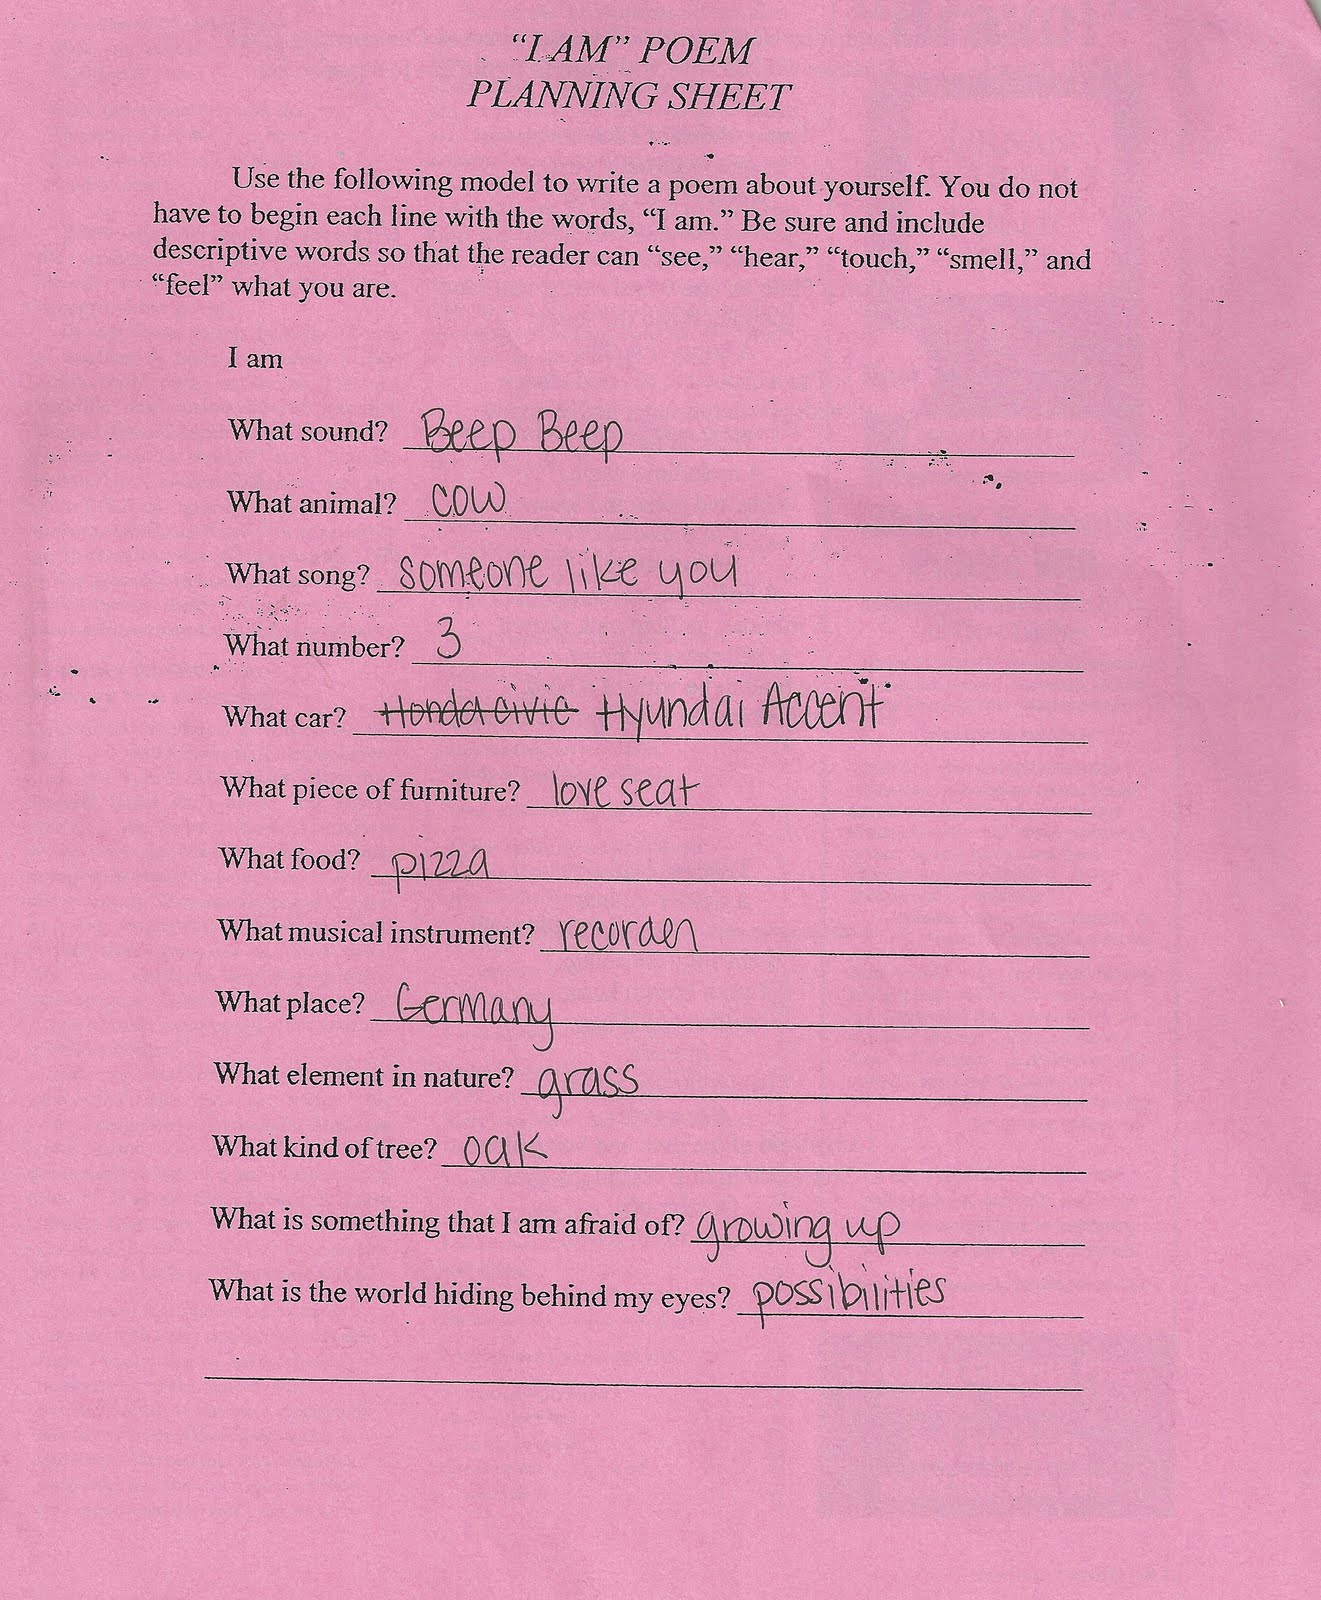 "I AM" POEM
PLANNING SHEET
Use the following model to write a poem about yourself. You do not
have to begin each line with the words, "I am." Be sure and include
descriptive words so that the reader can "see," "hear," "touch," "smell," and
"feel" what you are.
I am
What sound? Beep Beep
What animal? cow
What song? someone like you
What number? 3
What car? Honda civic Hyundai Accent
What piece of furniture? love seat
What food? pizza
What musical instrument? recorder
What place? Germany
What element in nature? grass
What kind of tree? oak
What is something that I am afraid of? growing up
What is the world hiding behind my eyes? possibilities